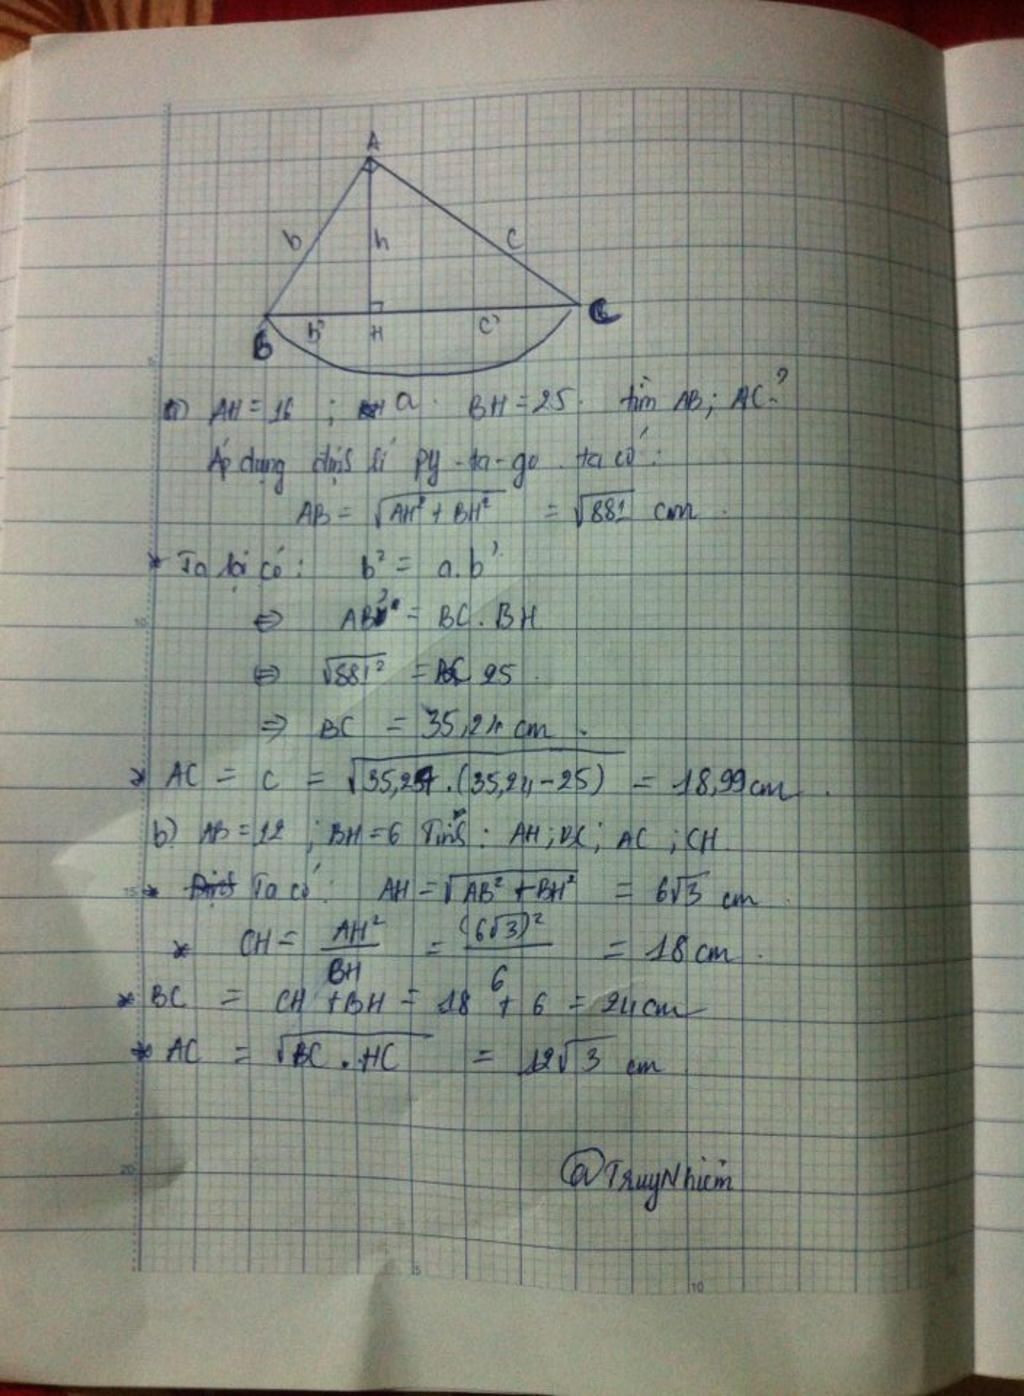 A
b h c
b' H c'
B C
a) AH = 16 ; a. BH = 25. tìm AB; AC?
Áp dụng định lí py-ta-go ta có:
AB = √(AH² + BH²) = √881 cm.
* Ta lại có: b² = a.b'
⇔ AB² = BC . BH
⇔ √881² = BC 25.
⇒ BC = 35,24 cm.
* AC = c = √(35,24.(35,24-25)) = 18,99cm.
b) AB = 12 ; BH = 6 Tính: AH; BC; AC; CH.
* Ta có: AH = √(AB² + BH²) = 6√3 cm.
* CH = AH²/BH = (6√3)²/6 = 18 cm.
* BC = CH + BH = 18 + 6 = 24cm
* AC = √(BC . HC) = 12√3 cm
@TruyNhiem
5
10
15
20
5
10